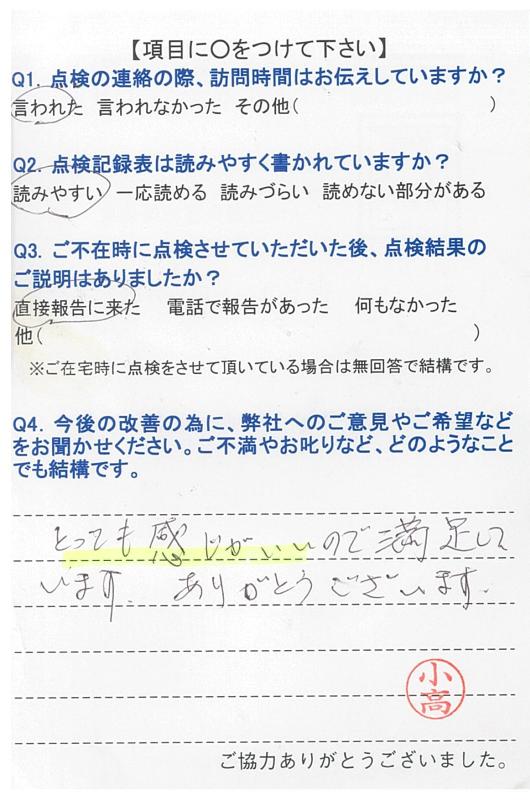 【項目に〇をつけて下さい】
Q1. 点検の連絡の際、訪問時間はお伝えしていますか？
言われた 言われなかった その他(　　　)
Q2. 点検記録表は読みやすく書かれていますか？
読みやすい 一応読める 読みづらい 読めない部分がある
Q3. ご不在時に点検させていただいた後、点検結果の
ご説明はありましたか？
直接報告に来た 電話で報告があった 何もなかった
他(　　　)
※ご在宅時に点検をさせて頂いている場合は無回答で結構です。
Q4. 今後の改善の為に、弊社へのご意見やご希望など
をお聞かせください。ご不満やお叱りなど、どのようなこと
でも結構です。
とっても感じがいいので満足して
います。ありがとうございます。
小高
ご協力ありがとうございました。